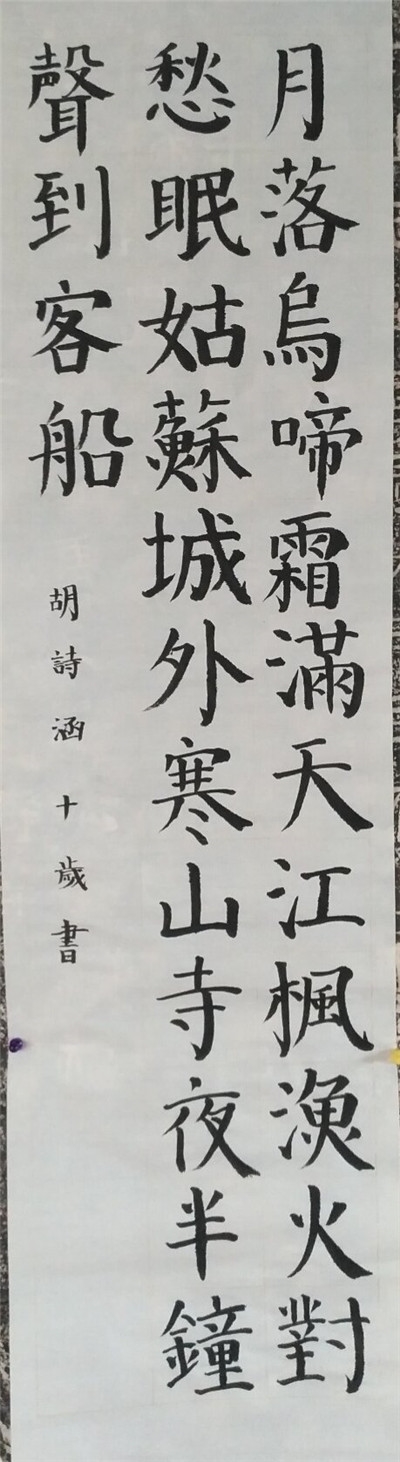 月落烏啼霜滿天江楓漁火對
愁眠姑蘇城外寒山寺夜半鐘
聲到客船
胡詩涵十歲書